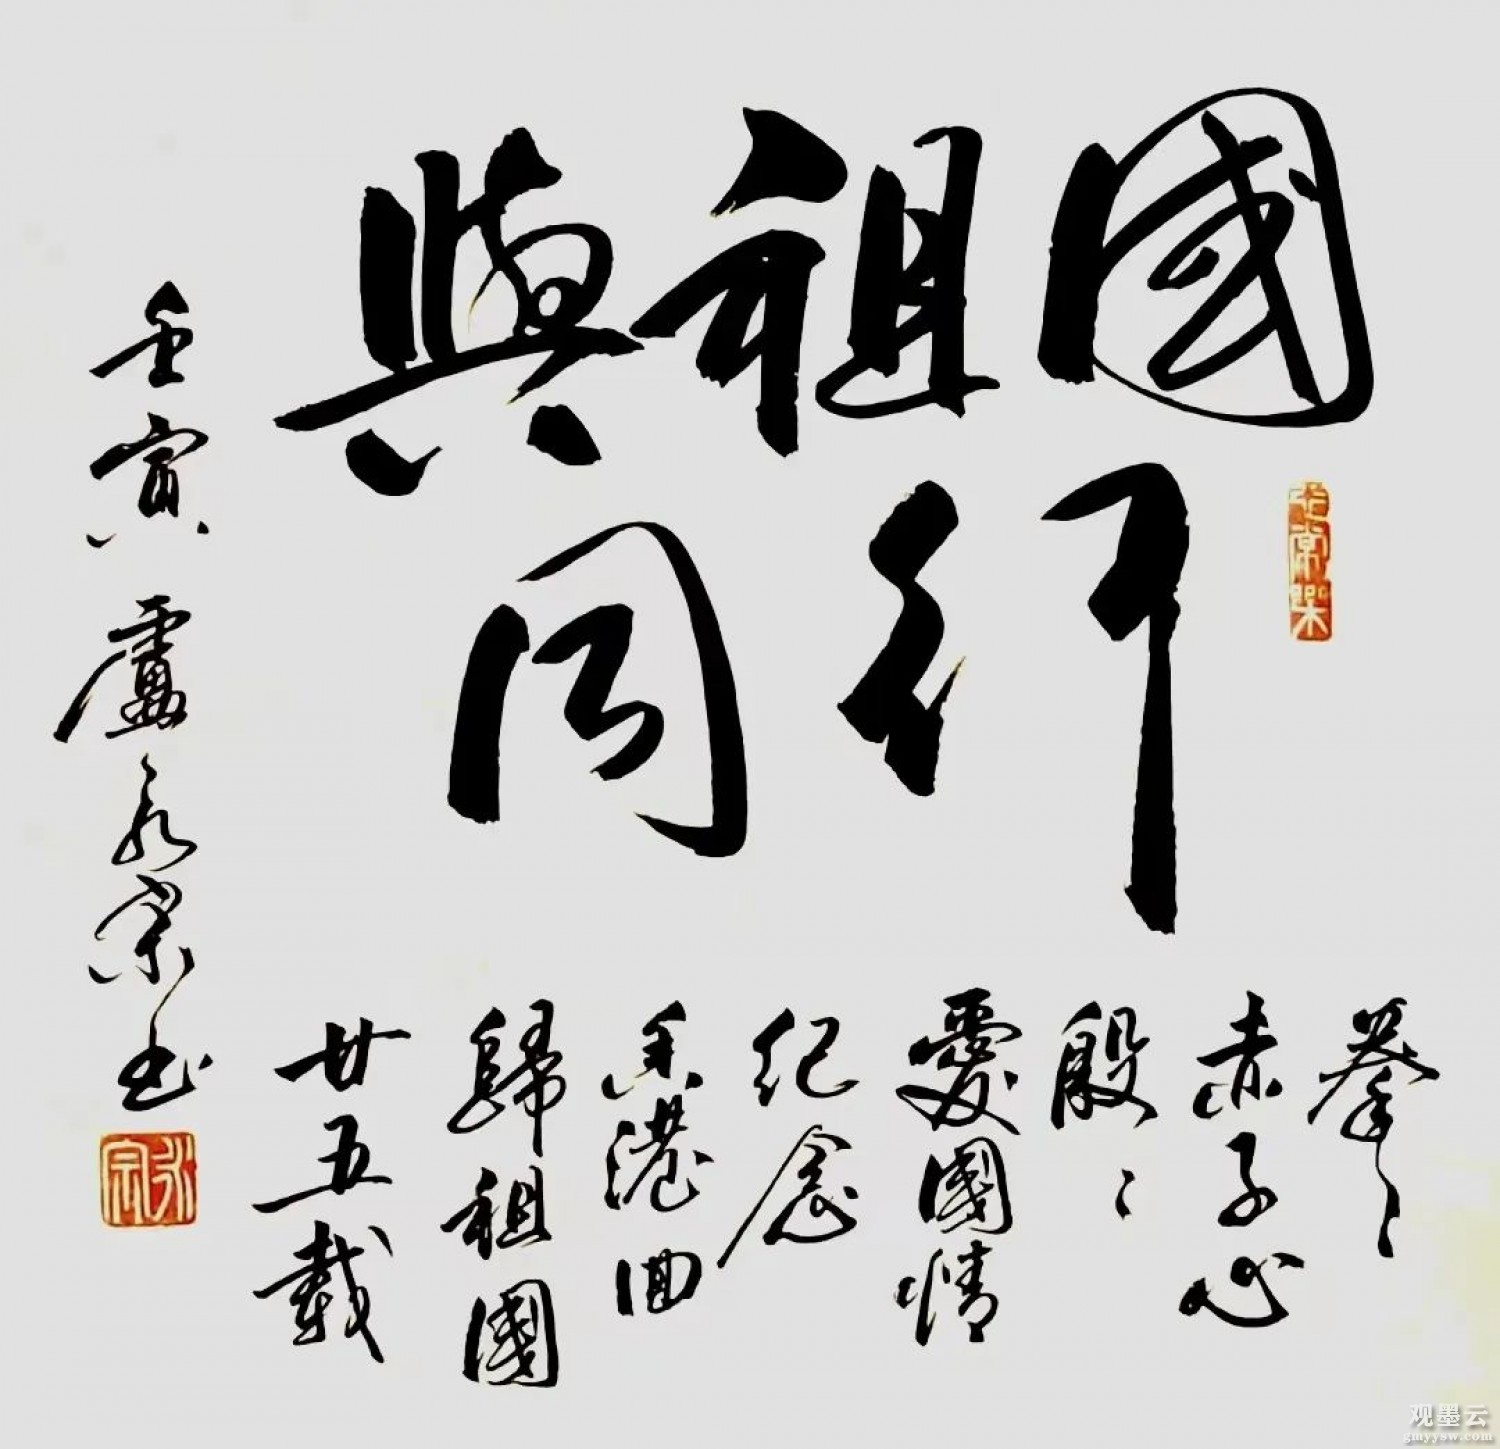 與祖國
同行
拳〻
赤子心
殷〻
愛國情
纪念
香港回
歸祖國
廿五載
壬寅 盧永宗书
永宗
常樂
观墨云
gmyysw.com